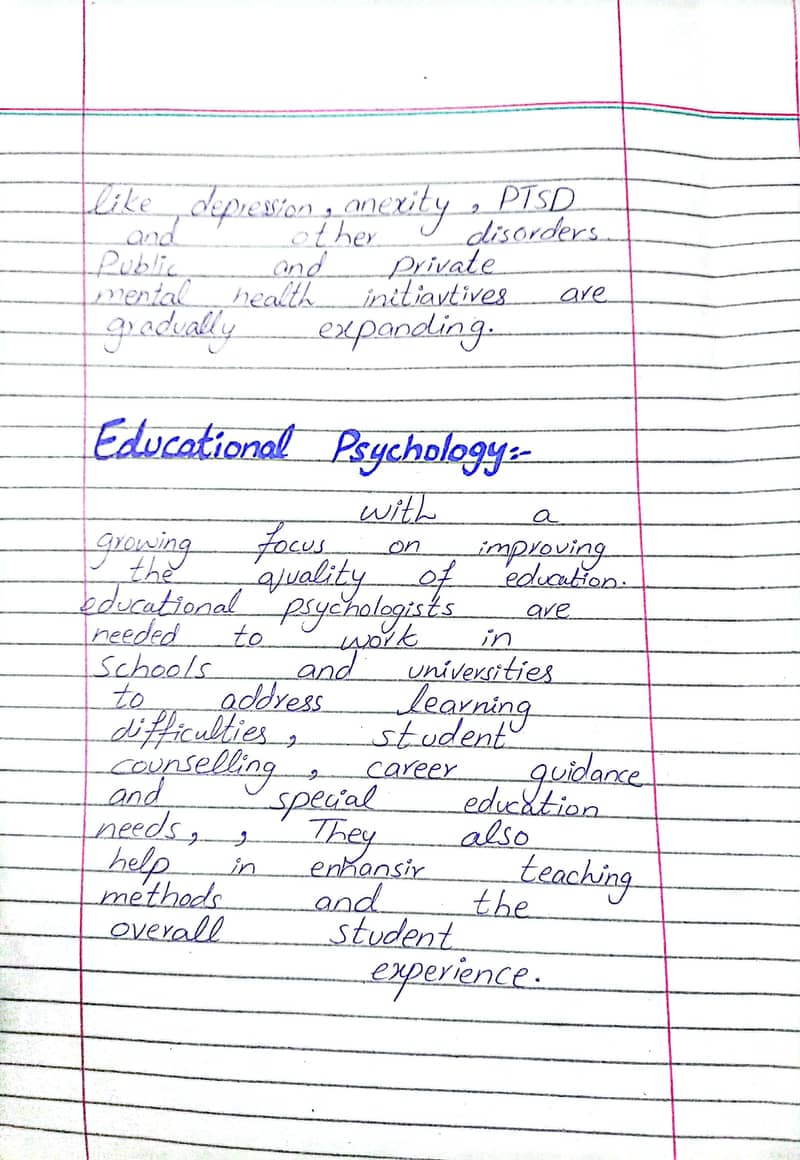 like , depression, anexity , PTSD
and other disorders
Public and private
mental health initiavtives are
gradually expanding.
Educational Psychology:-
with a
growing focus on improving
the quality of education.
educational psychologists are
needed to work in
Schools and universities
to address learning
difficulties, student
counselling , career guidance
and special education
needs, , They also
help in enhansir teaching
methods and the
overall student
experience.